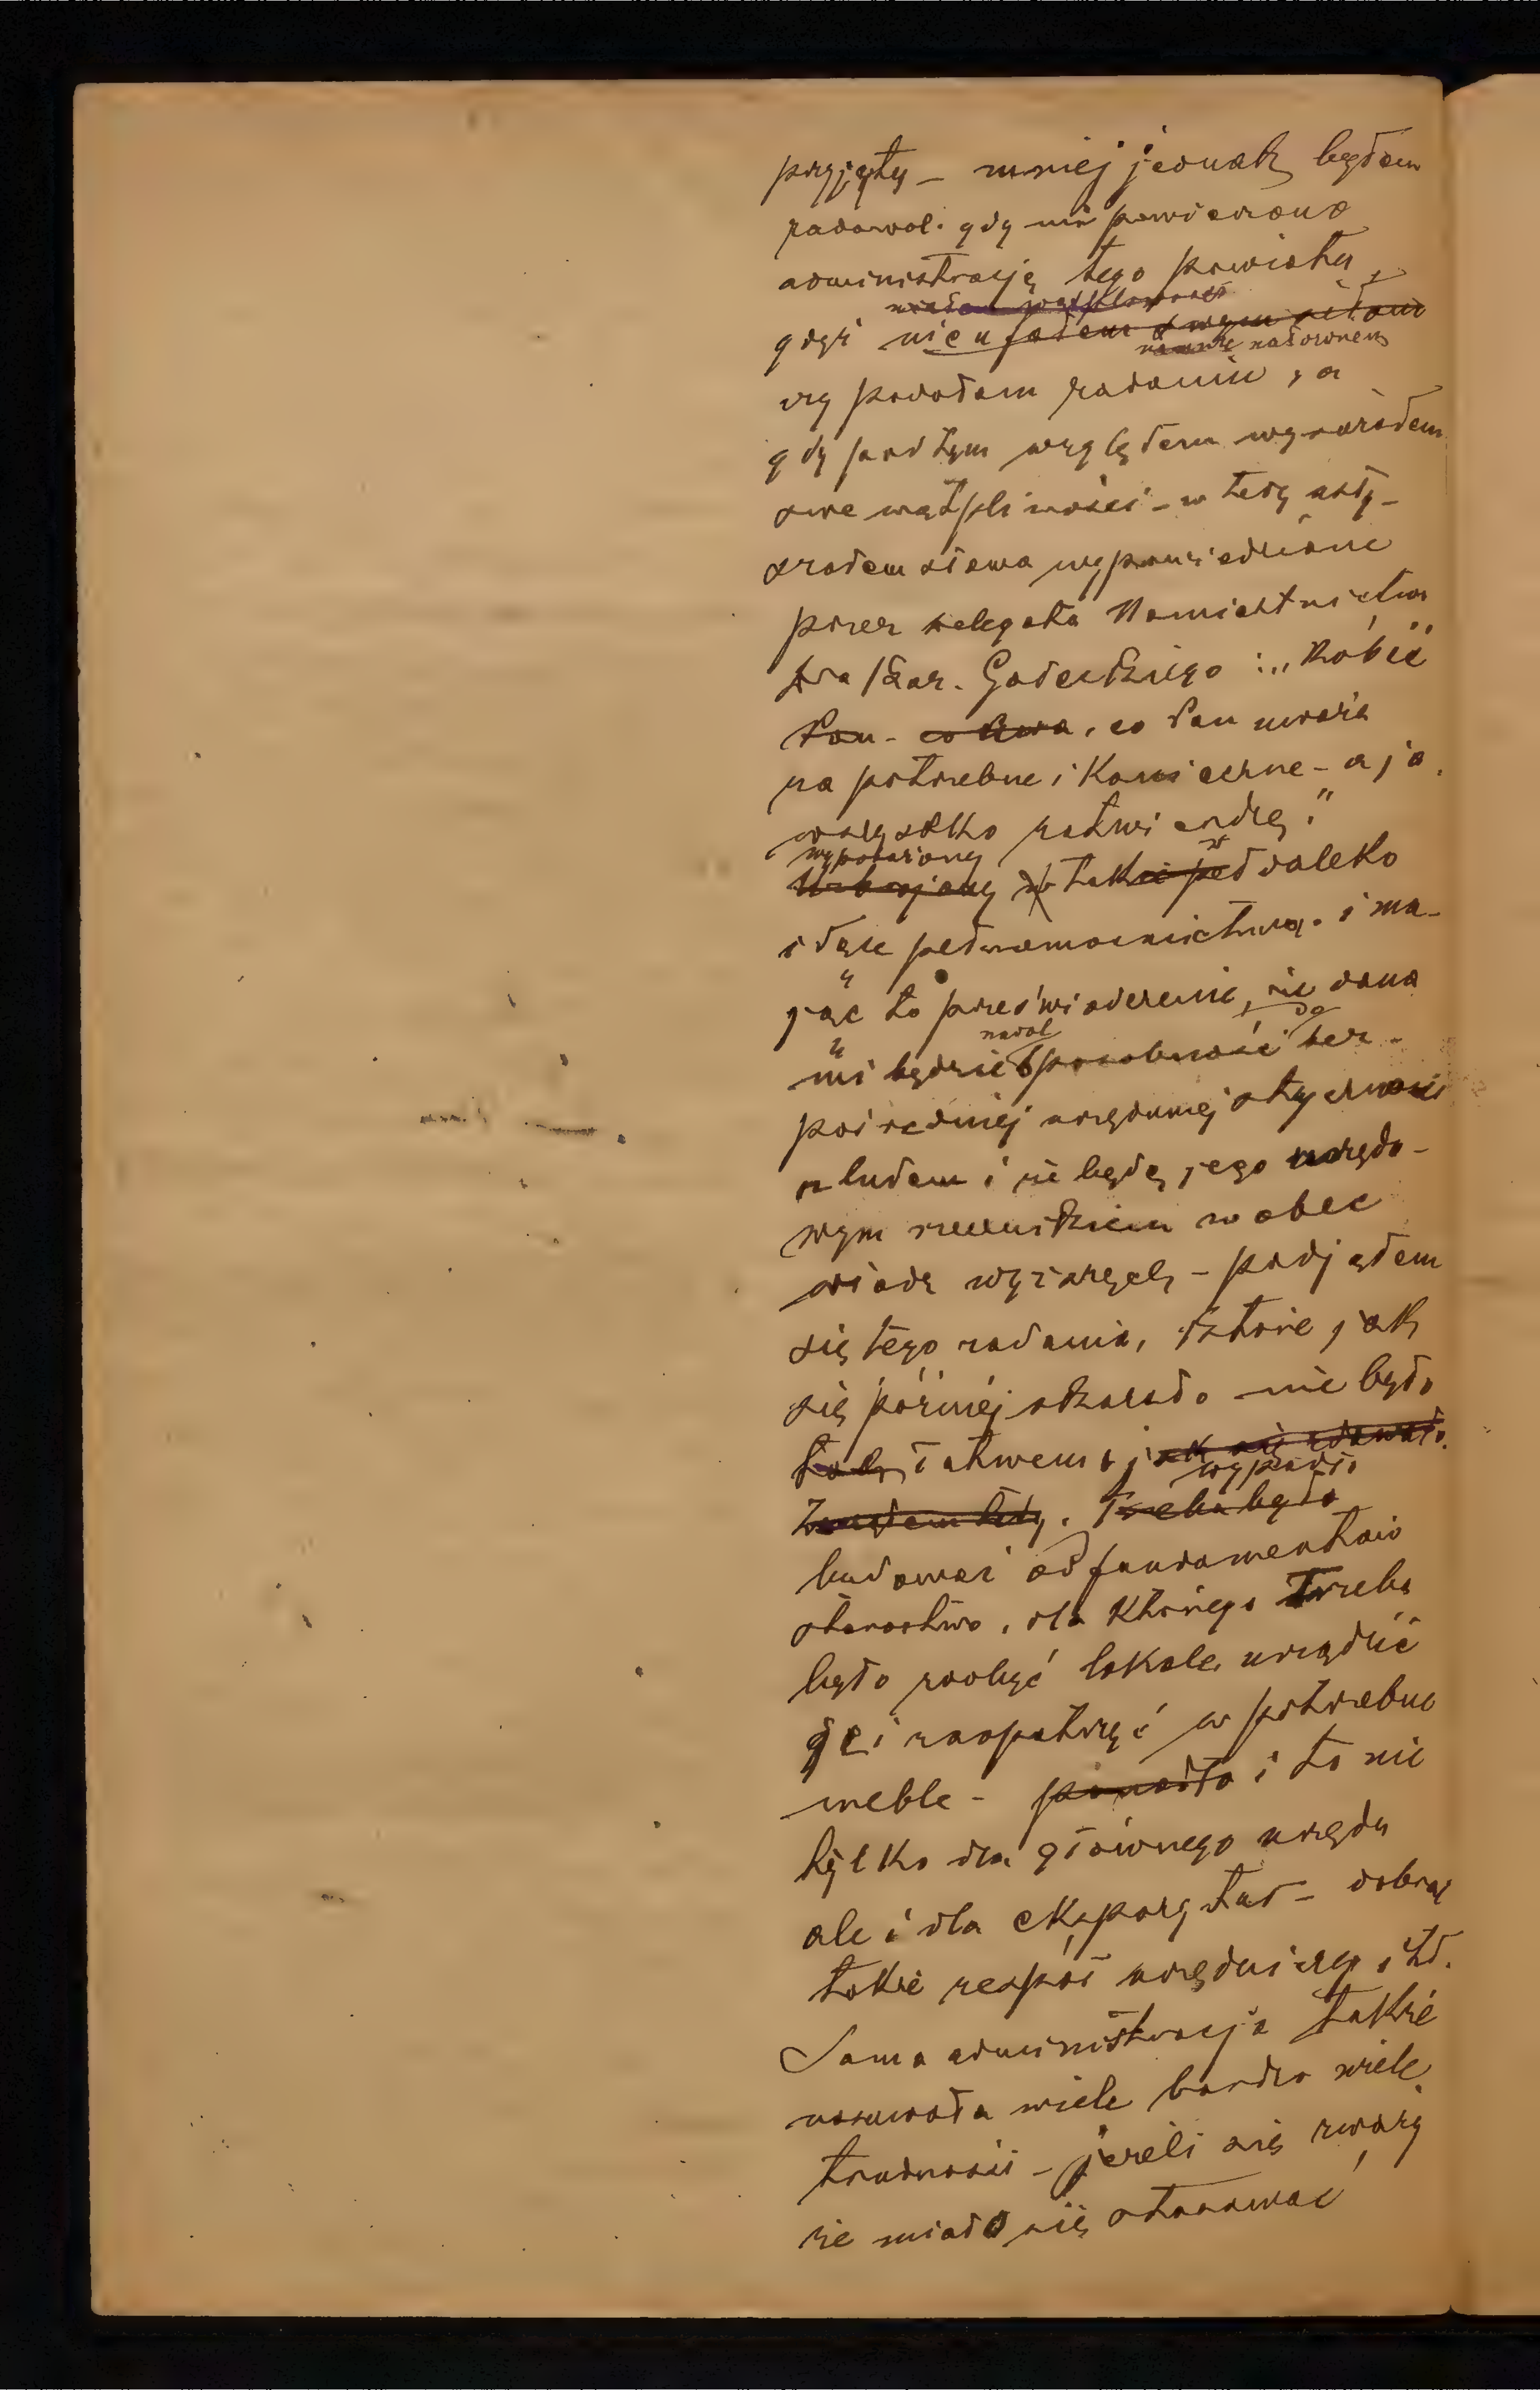 przyjęty – mniej jednak byłem
zadowol. gdy mi powierzono
administrację tego powiatu,
miałem wątpliwości
gdyż nie ufałem swym siłom
nałożonemu
czy podołam zadaniu, a
gdy pod tym względem wyraziłem
swe wątpliwości – wtedy usły-
szałem słowa wypowiedziane
przez delegata Namiestnictwa
Dra Kaz. Gałeckiego: „Robić
Pan – co Pan uważa
za potrzebne i konieczne – a ja
wszystko zatwierdzę."
wyposażony w
Uzbrojony w tak daleko
idące pełnomocnictwa i ma-
jąc to przeświadczenie, że dana
nadal do
mi będzie sposobność bez-
pośredniej urzędowej styczności
z ludem i że będę jego urzędo-
wym rzecznikiem wobec
władz wyższych – podjąłem
się tego zadania, które jak
się później okazało nie było
tak łatwem, jak się zdawało.
wypadło
Trzeba było
budować od fundamentów
starostwo, dla którego trzeba
było zdobyć lokale, urządzić
je i zaopatrzyć w potrzebne
meble – ponadto i to nie
tylko dla głównego urzędu
ale i dla ekspozytur – dobrać
także zespół urzędniczy itd.
Sama administracja także
nasuwała wiele bardzo wiele
trudności – jeżeli się zważy
że miało się stosować